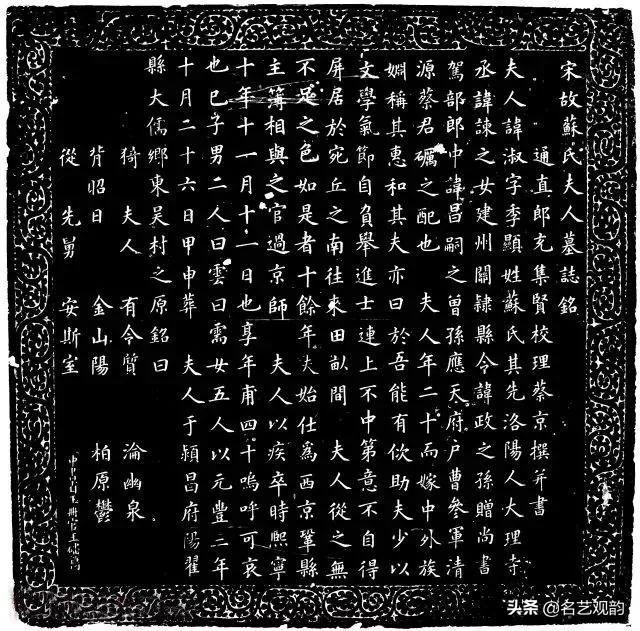 宋故蘇氏夫人墓誌銘
通直郎充集賢校理蔡京撰并書
夫人諱淑字季顯姓蘇氏其先洛陽人大理寺
丞諱諫之女建州關隸縣令諱政之孫贈尚書
駕部郎中諱昌嗣之曾孫應天府户曹參軍清
源蔡君礪之配也 夫人年二十而嫁中外族
婣稱其惠和其夫亦曰於吾能有佽助夫少以
文學氣節自負舉進士連上不中第意不自得
屏居於宛丘之南往來田畝間 夫人從之無
不足之色如是者十餘年夫始仕為西京鞏縣
主簿相與之官過京師 夫人以疾卒時熙寧
十年十一月十一日也享年甫四十嗚呼可哀
也已子男二人曰雲曰需女五人以元豐二年
十月二十六日甲申葬 夫人于潁昌府陽翟
縣大儒鄉東吳村之原銘曰
猗 夫人 有令質 淪幽泉
背昭日 金山陽 柏原鬱
從先舅 安斯室
头条 @名艺观韵